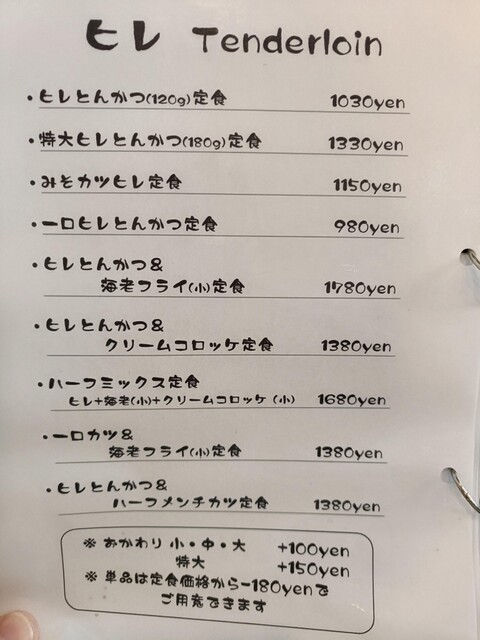 ヒレ Tenderloin
・ヒレとんかつ(120g)定食 1030yen
・特大ヒレとんかつ(180g)定食 1330yen
・みそカツヒレ定食 1150yen
・一口ヒレとんかつ定食 980yen
・ヒレとんかつ&
海老フライ(小)定食 1780yen
・ヒレとんかつ&
クリームコロッケ定食 1380yen
・ハーフミックス定食
ヒレ+海老(小)+クリームコロッケ(小) 1680yen
・一口カツ&
海老フライ(小)定食 1380yen
・ヒレとんかつ&
ハーフメンチカツ定食 1380yen
※ おかわり 小・中・大 +100yen
特大 +150yen
※ 単品は定食価格から-180yenで
ご用意できます